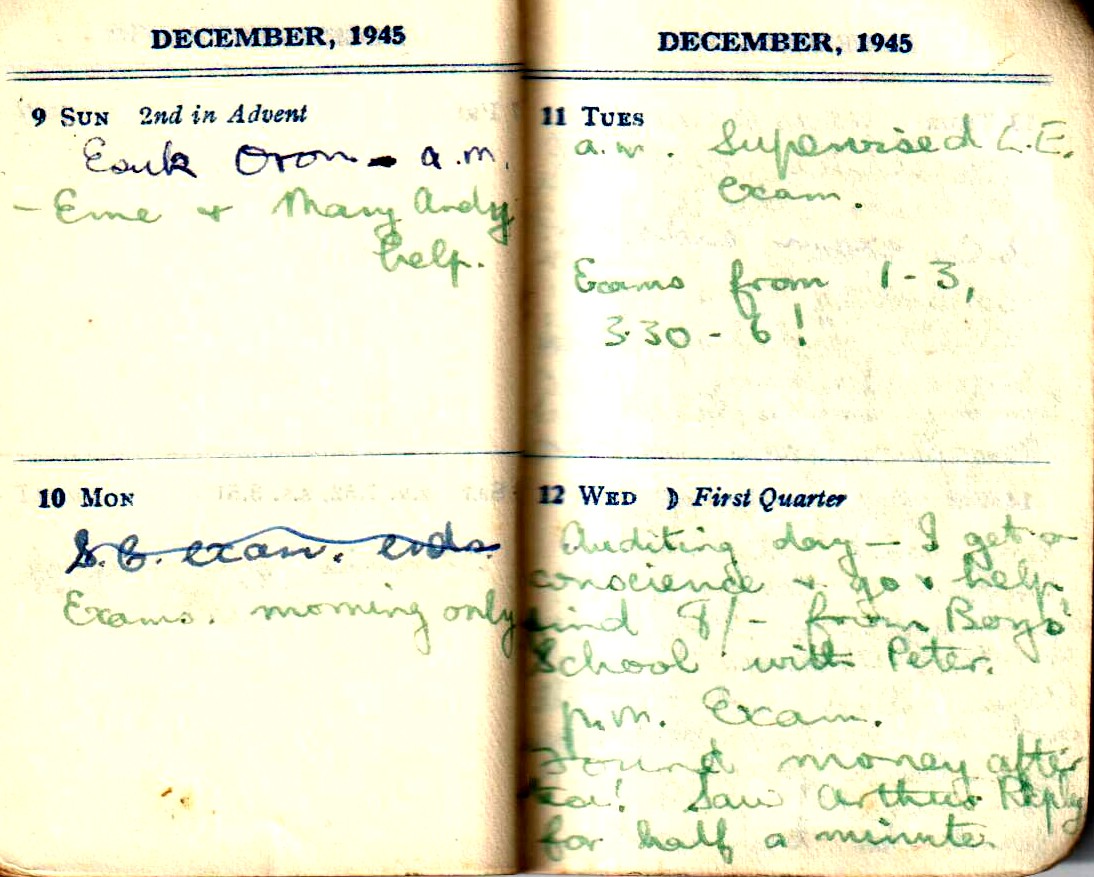 DECEMBER, 1945
9 SUN 2nd in Advent
Esuk Oron - a.m.
- Eme + Mary Andy
help.
10 MON
S.C. exam. ends
Exams. morning only
DECEMBER, 1945
11 TUES
a.m. Supervised L.E.
exam.
Exams from 1-3,
3.30 - 6!
12 WED ☽ First Quarter
Auditing day - I get a
conscience + go + help
find 8/- from Boys'
School with Peter.
p.m. Exam.
Found money after
tea! Saw Arthur
for half a minute.